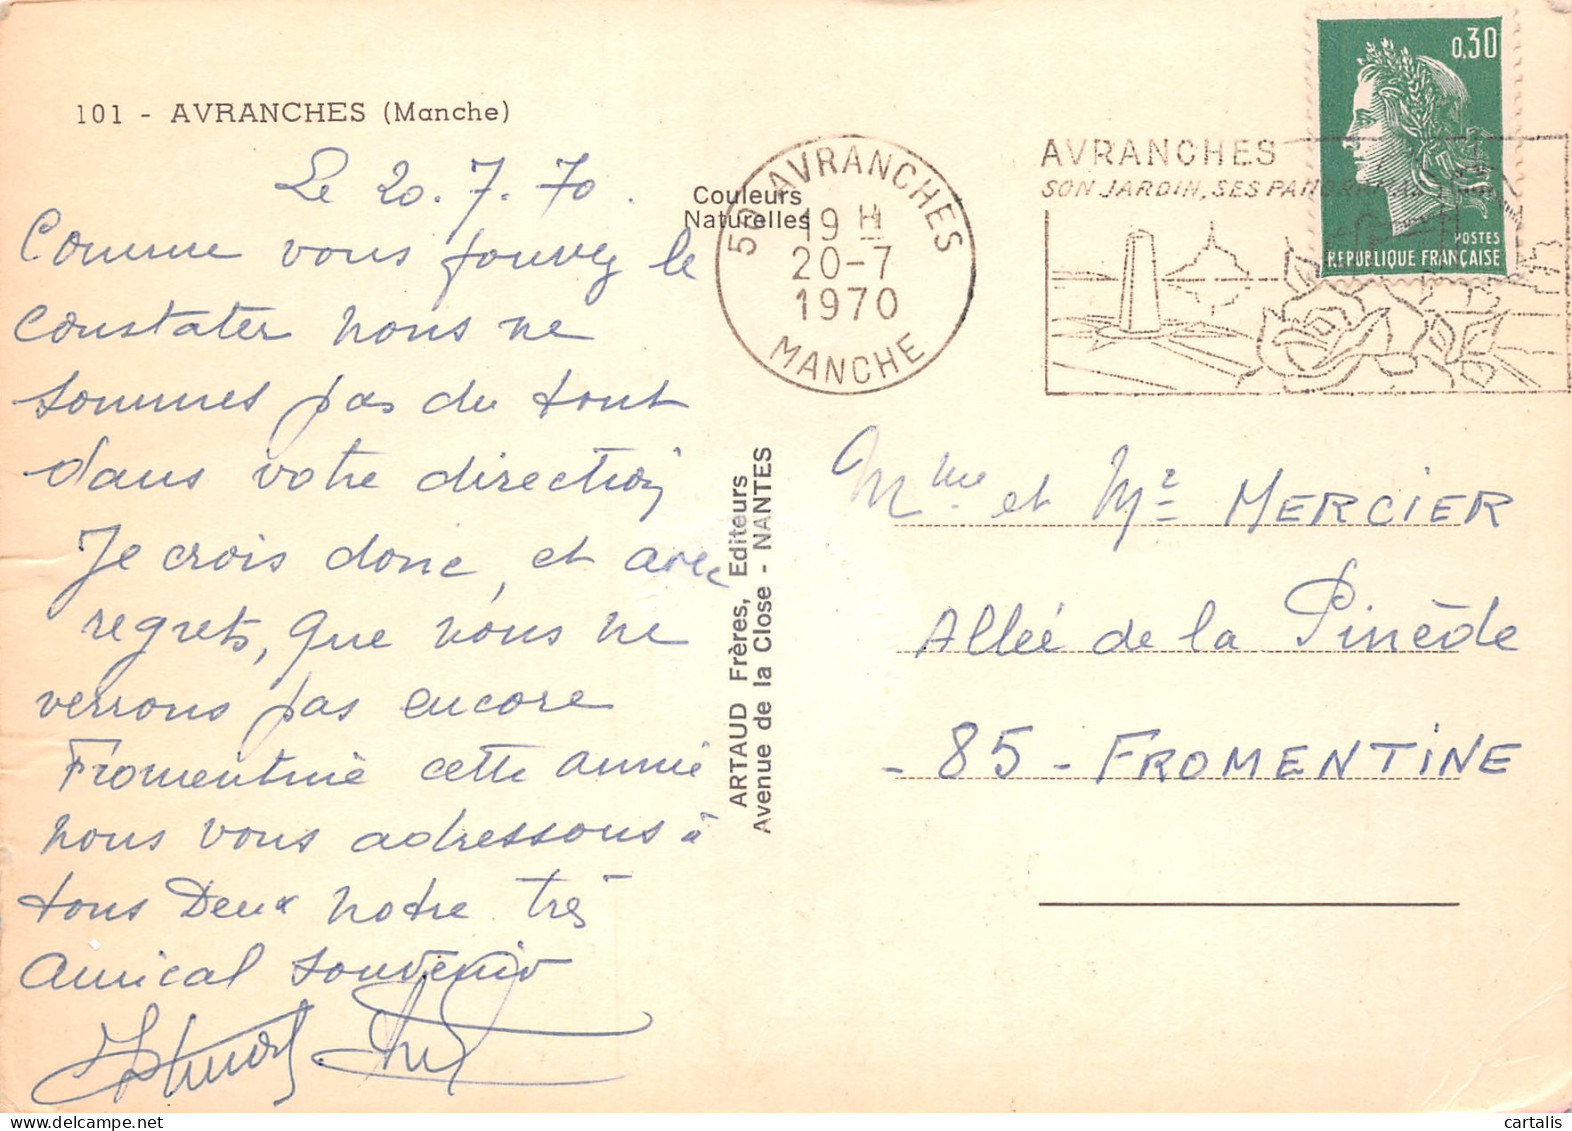 101 - AVRANCHES (Manche)
Le 20.7.70.
Comme vous pouvez le
constater nous ne
sommes pas du tout
dans votre direction
Je crois donc, et avec
regrets, que nous ne
verrons pas encore
Fromentine cette année
nous vous adressons à
tous Deux notre très
Amical souvenir
Couleurs
Naturelles
50 AVRANCHES
19 H
20-7
1970
MANCHE
AVRANCHES
SON JARDIN, SES
0,30
POSTES
REPUBLIQUE FRANÇAISE
ARTAUD Frères, Editeurs
Avenue de la Close - NANTES
Mme et Mr MERCIER
Allée de la Pinède
- 85 - FROMENTINE
cartalis